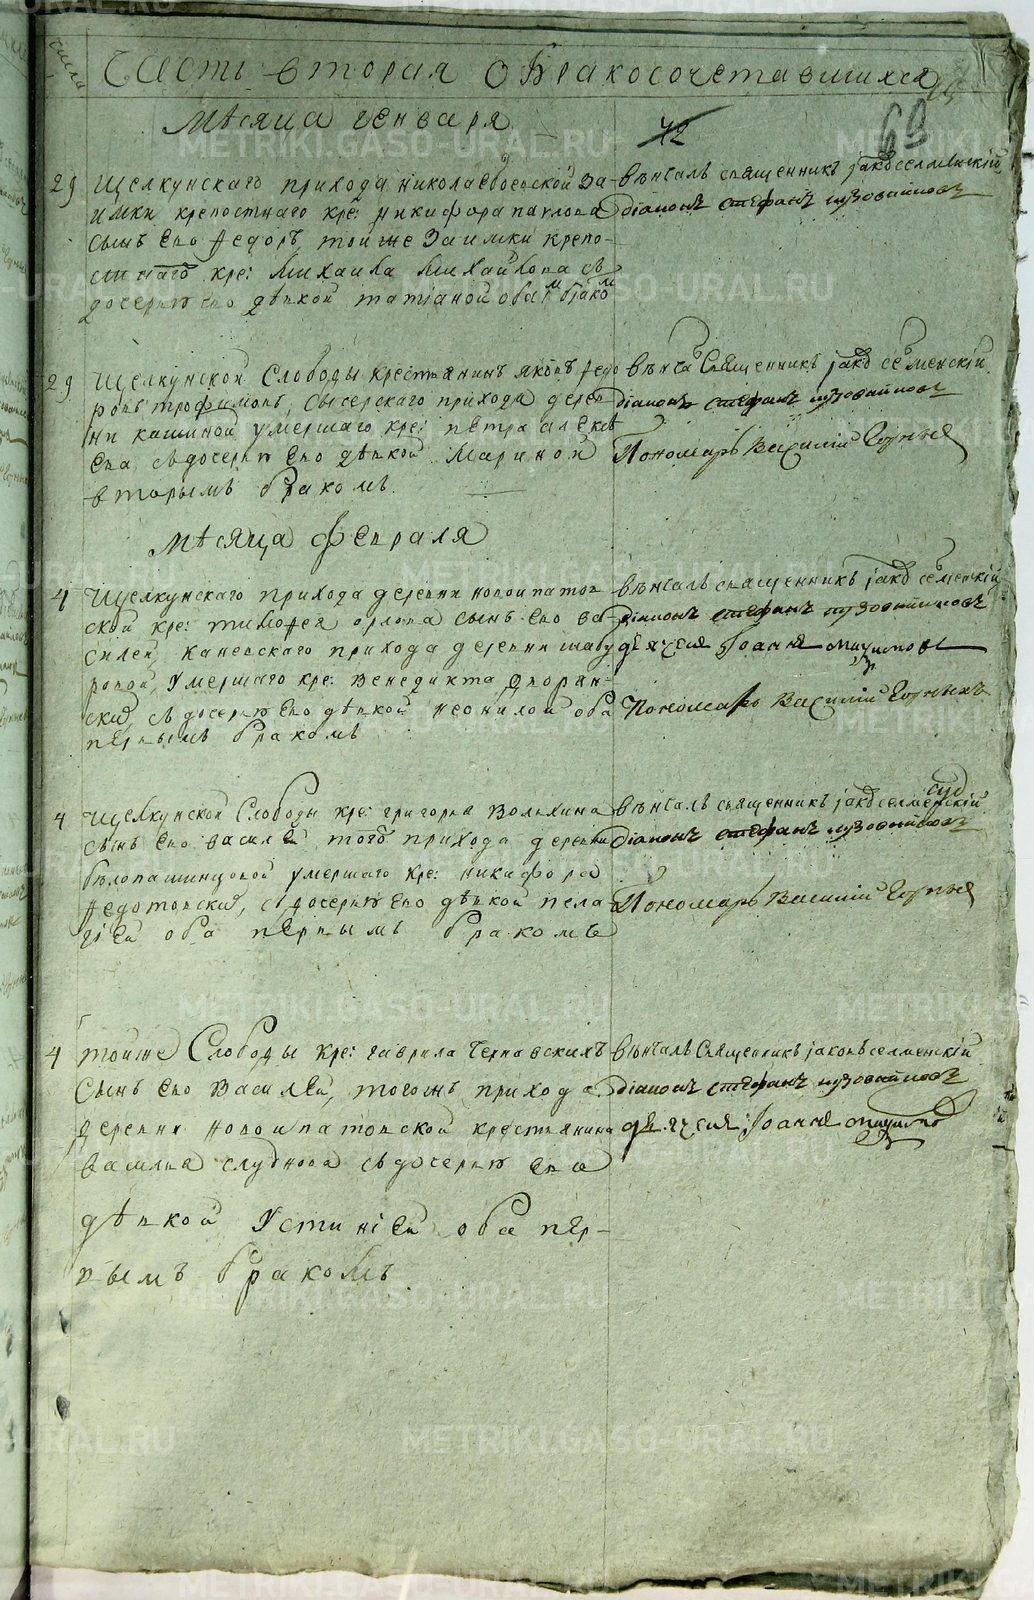 числа
Часть вторая о бракосочетавшихся
69
Мѣсяца генваря
42
29 Щелкунскаго прихода Николаевоевской За-
имки крепостнаго кре: Никифора Павлова
сынъ Ево Федоръ, тойже Заимки крепо-
стнаго кре: Михаила Михайлова съ
дочерью Ево дѣвкой Татіаной оба бракомъ
вѣнчалъ священникъ Іаковъ Селменскій
діаконъ Стефанъ
29 Щелкунской Слободы крестьянинъ Яковъ Федо
ровъ Трофимовъ, Сысерскаго прихода дерев
ни Кашиной умершаго кре: Петра Алексѣ
ева, съ дочерью Ево дѣвкой Мариной
вторымъ бракомъ.
Вѣнча Священникъ Іаковъ Селменскій
діаконъ Стефанъ
Пономарь Василій
Мѣсяца Февраля
4 Щелкунскаго прихода деревни Новоипатов
ской кре: Тимофея Орлова сынъ Ево Ва-
силей, Каневскаго прихода деревни Шабу
ровой, умершаго кре: Венедикта Дворян-
скихъ, съ дочерью Ево дѣвкой Неонилой оба
первымъ бракомъ
вѣнчалъ священникъ Іаковъ Селменскій
діаконъ Стефанъ
дьячекъ Іоаннъ
Пономарь Василій
4 Щелкунской Слободы кре: Григорья Волхина
сынъ Ево Василей того прихода деревни
Бѣлопашинцовой умершаго кре: Никифора
Федотовскихъ, съ дочерью Ево дѣвкой Пела
гіей оба первымъ бракомъ
вѣнчалъ священникъ Іаковъ Селменскій
діаконъ Стефанъ
Пономарь Василій
4 тойже Слободы кре: Гаврила Чернавскихъ
Сынъ Ево Василей, тогожъ прихода
деревни Новоипатовской крестьянина
Василья Слуднова съ дочерью Ево
дѣвкой Устиніей оба пер-
вымъ бракомъ
вѣнчалъ Священникъ Іаковъ Селменскій
діаконъ Стефанъ
дьячекъ Іоаннъ
METRIKI.GASO-URAL.RU